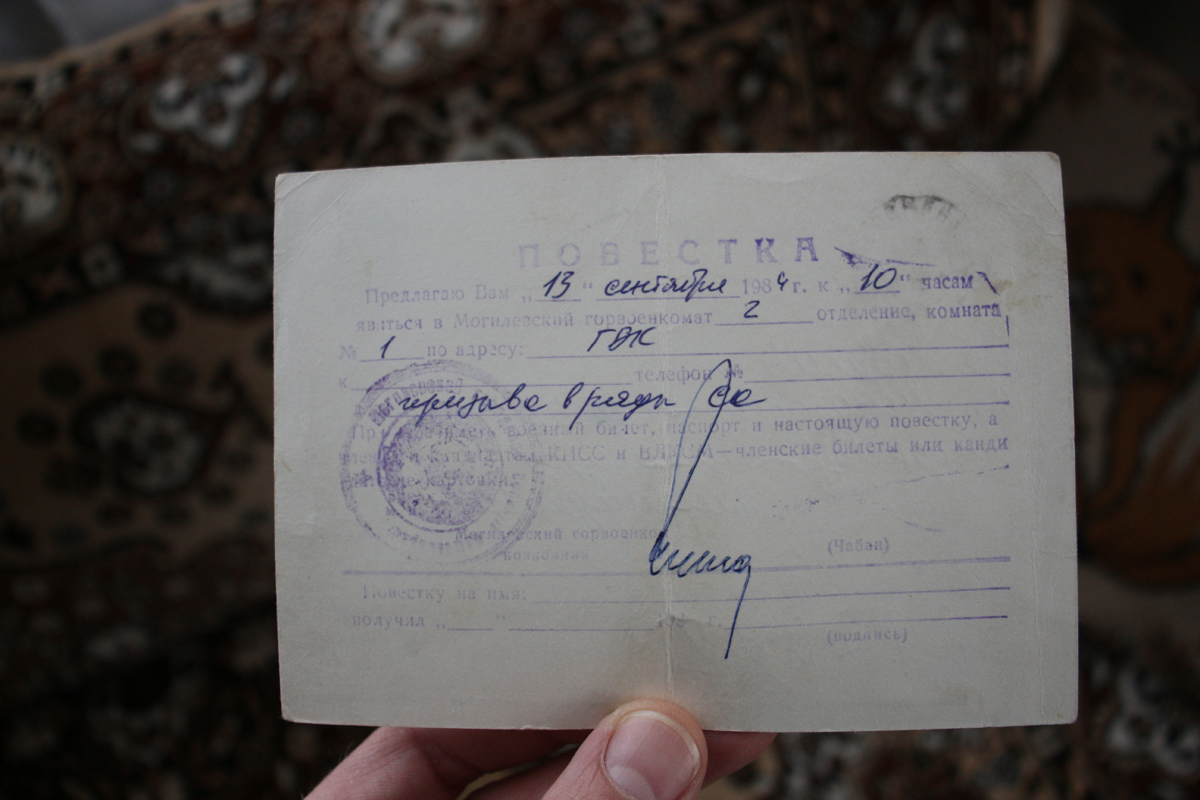 ПОВЕСТКА
Предлагаю Вам „13“ сентября 1984 г. к „10“ часам
явиться в Могилевский горвоенкомат 2 отделение, комната
№ 1 по адресу: ГВК
к телефон №
призыва в ряды СА
При иметь военный билет, паспорт и настоящую повестку, а
члены и кандидаты КПСС и ВЛКСМ—членские билеты или канди
карточки.
Могилевский горвоенком
(Чабан)
Повестку на имя:
получил „ “ 198 г.
(подпись)